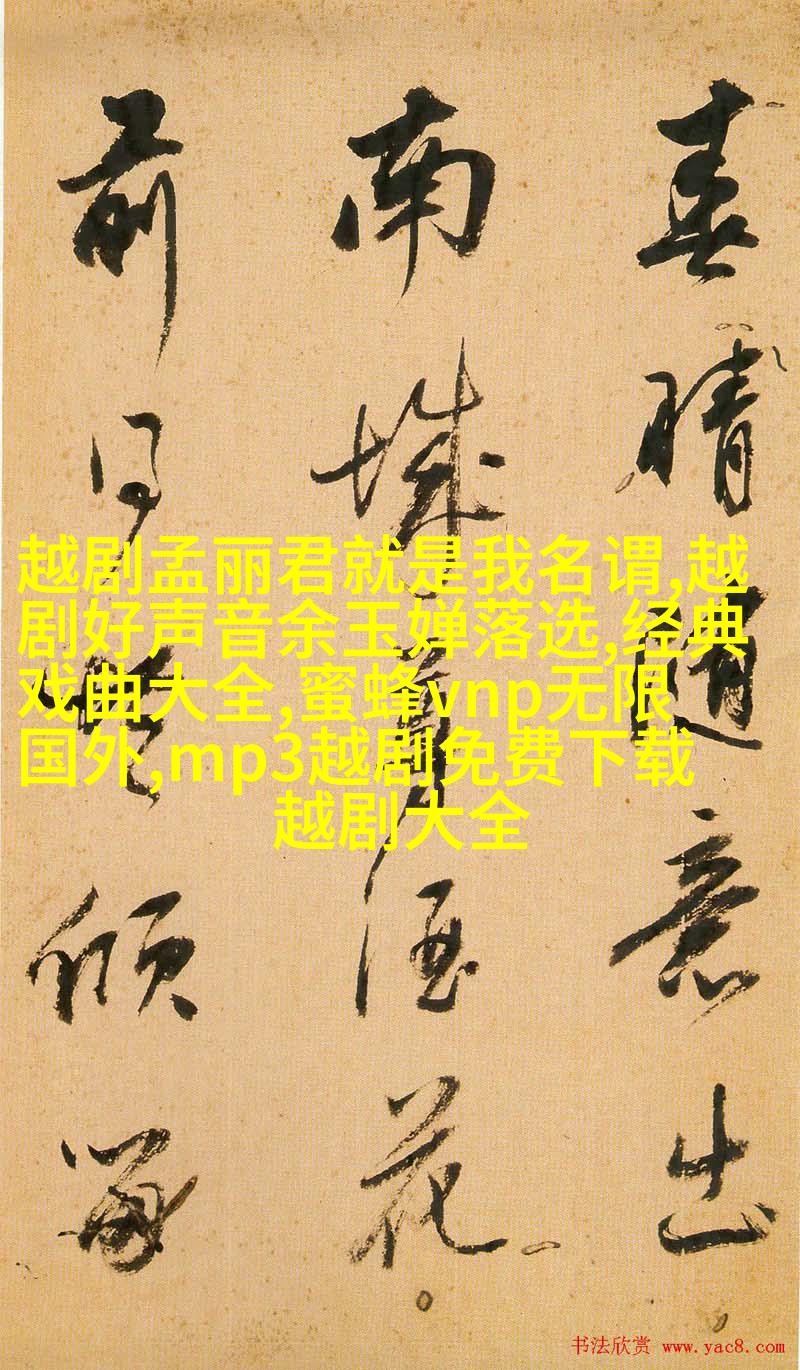 春晴隨意出
南城酒花
前傾
越剧孟丽君就是我名谓,越
剧好声音余玉婵落选,经典
戏曲大全,蜜蜂vnp无限
国外,mp3越剧免费下载
越剧大全
书法欣赏 www.yac8.com